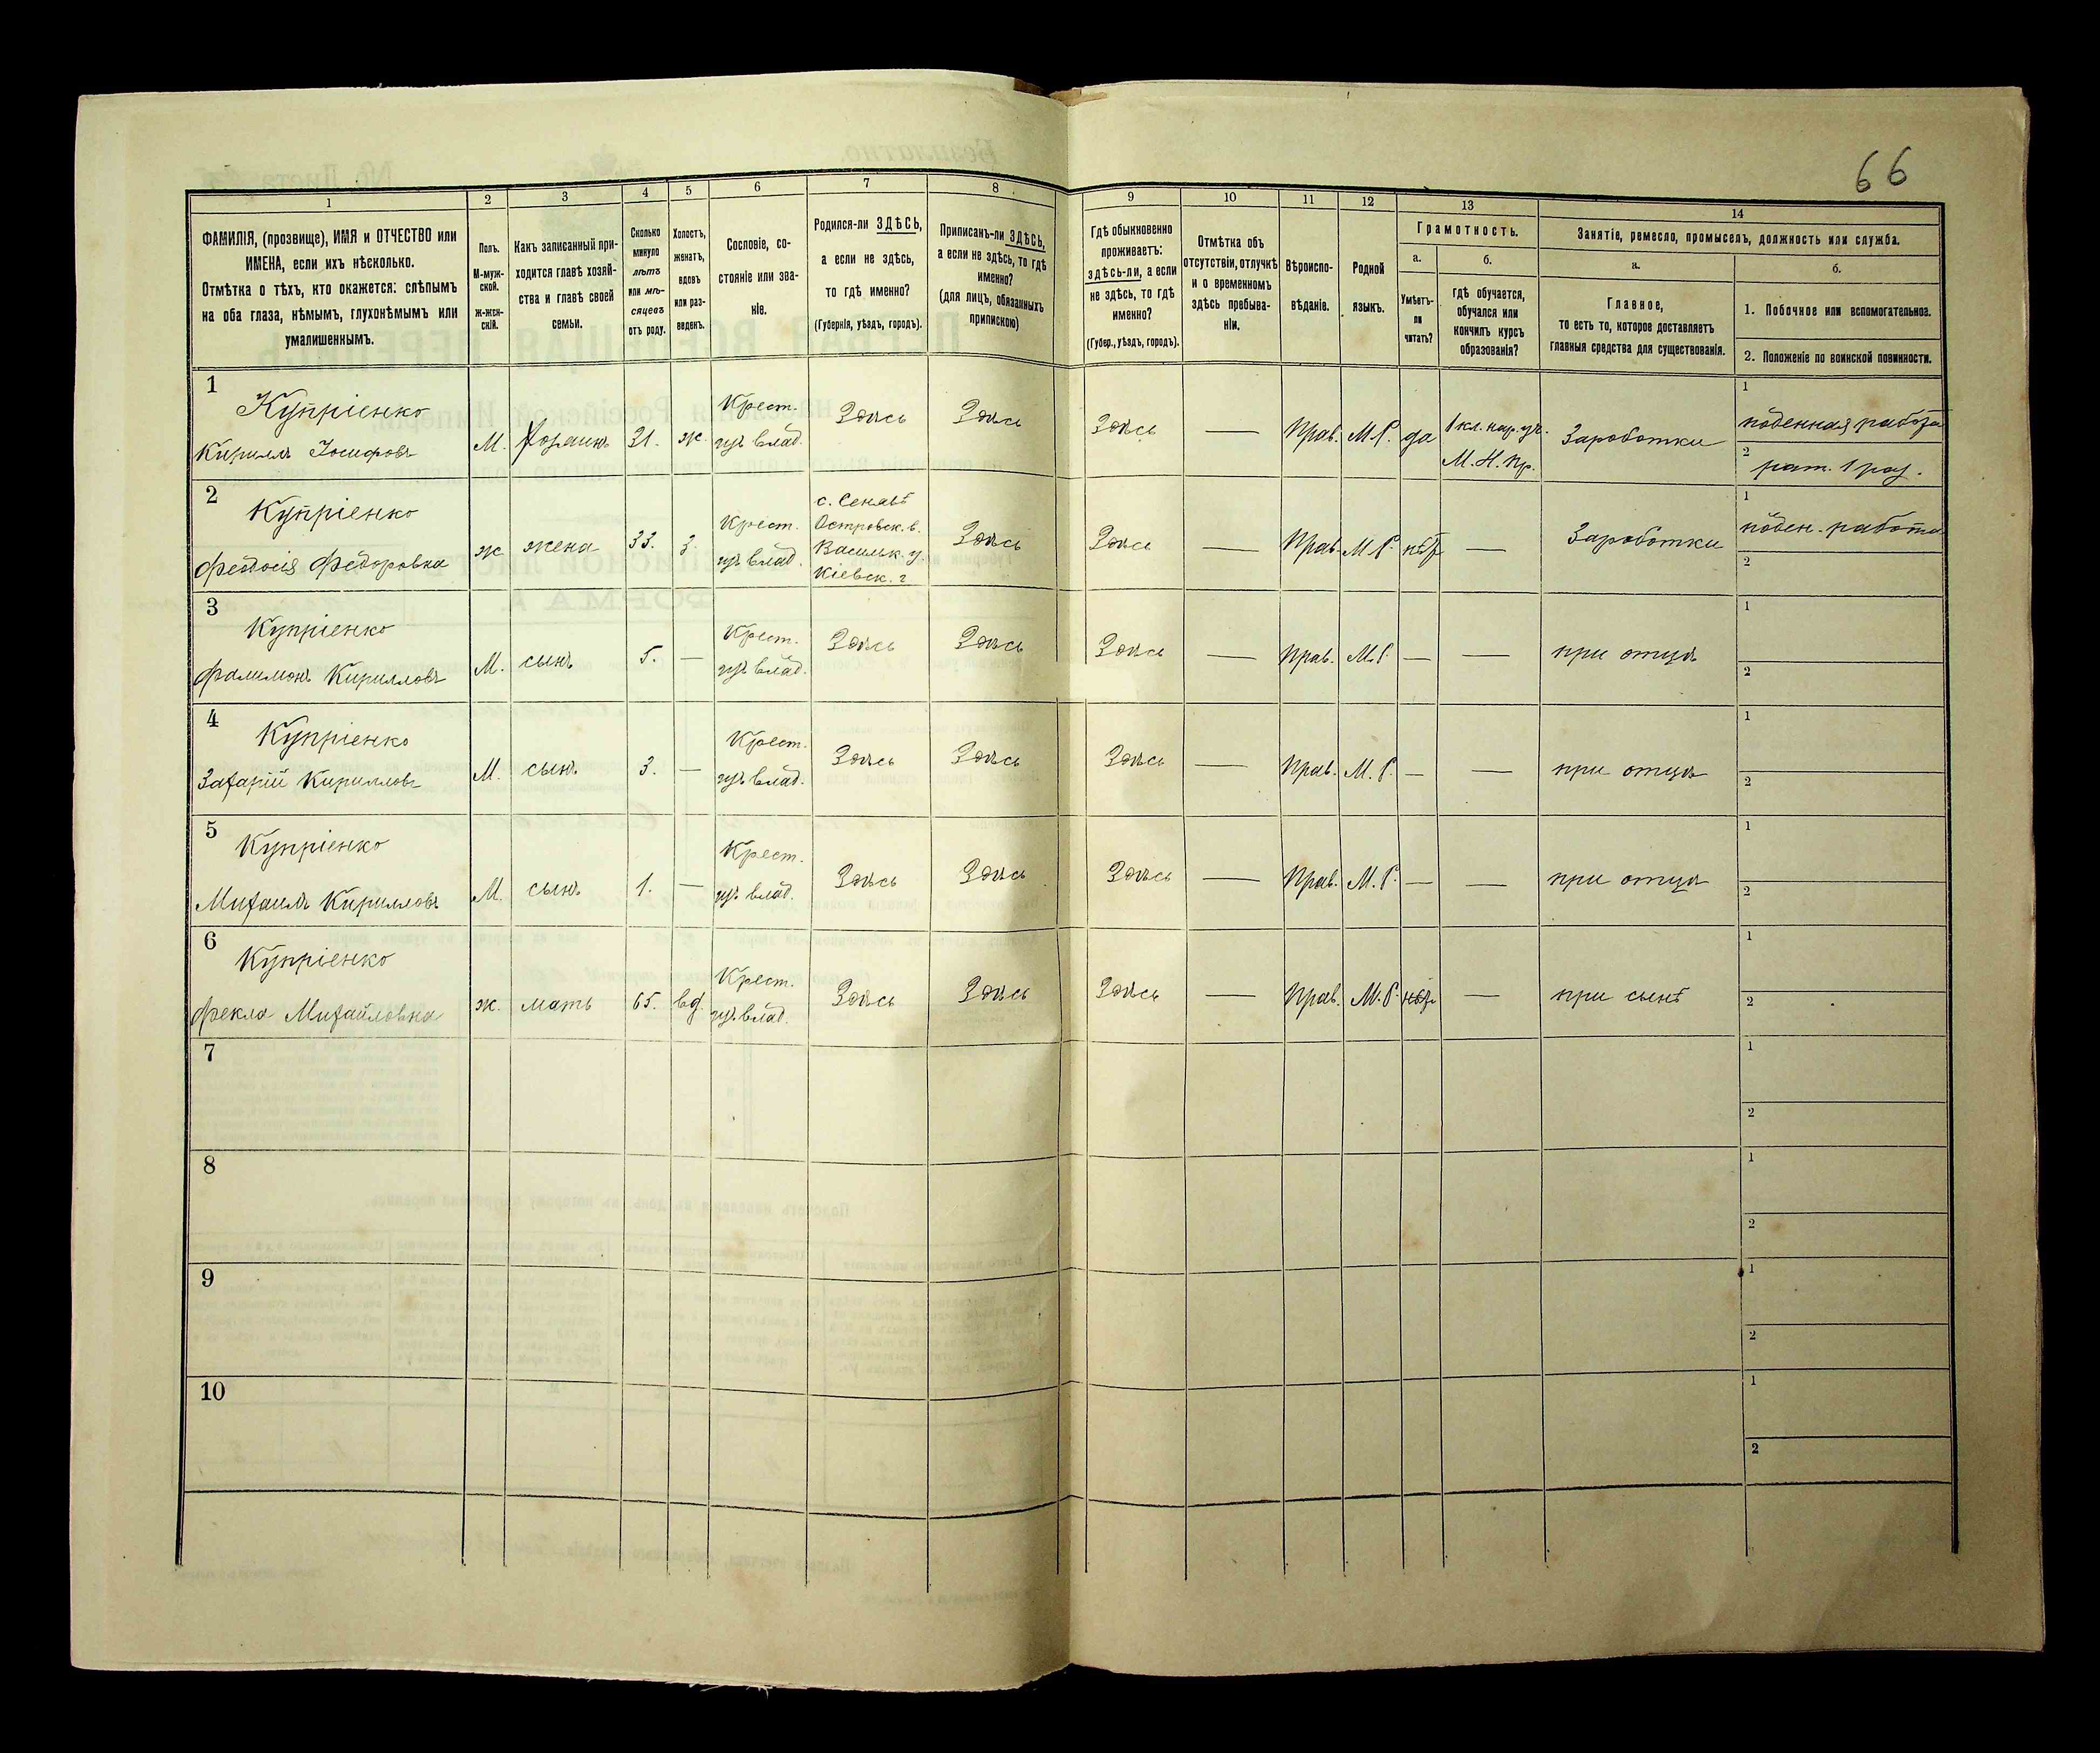 66
1 2 3 4 5 6 7 8 9 10 11 12 13 14
ФАМИЛІЯ, (прозвище), ИМЯ и ОТЧЕСТВО или
ИМЕНА, если ихъ нѣсколько.
Отмѣтка о тѣхъ, кто окажется: слѣпымъ
на оба глаза, нѣмымъ, глухонѣмымъ или
умалишеннымъ.
Полъ.
М-муж-
ской.
Ж-жен-
скій.
Какъ записанный при-
ходится главѣ хозяй-
ства и главѣ своей
семьи.
Сколько
минуло
лѣтъ
или мѣ-
сяцевъ
отъ роду.
Холостъ,
женатъ,
вдовъ
или раз-
веденъ.
Сословіе, со-
стояніе или зва-
ніе.
Родился-ли ЗДѢСЬ,
а если не здѣсь,
то гдѣ именно?
(Губернія, уѣздъ, городъ).
Приписанъ-ли ЗДѢСЬ,
а если не здѣсь, то гдѣ
именно?
(для лицъ, обязанныхъ
припискою)
Гдѣ обыкновенно
проживаетъ:
ЗДѢСЬ-ли, а если
не здѣсь, то гдѣ
именно?
(Губер., уѣздъ, городъ).
Отмѣтка объ
отсутствіи, отлучкѣ
и о временномъ
здѣсь пребыва-
ніи.
Вѣроиспо-
вѣданіе.
Родной
языкъ.
Грамотность.
а.
Умѣетъ-
ли
читать?
б.
гдѣ обучается,
обучался или
кончилъ курсъ
образованія?
Занятіе, ремесло, промыселъ, должность или служба.
а.
Главное,
то есть то, которое доставляетъ
главныя средства для существованія.
б.
1. Побочное или вспомогательное.
2. Положеніе по воинской повинности.
1
Купріенко
Кириллъ Іосифовъ
М.
хозяинъ
31.
ж.
Крест.
изъ влад.
Здѣсь
Здѣсь
Здѣсь
—
Прав.
М.Р.
да
1 кл. нар. уч.
М. Н. Пр.
Заработки
1
поденная работа
2
рат. 1 раз.
2
Купріенко
Феодосія Федоровна
ж
жена
33.
з.
Крест.
изъ влад.
Островск. в.
Васильк. у.
Кіевск. г
Здѣсь
Здѣсь
—
Прав.
М.Р.
нѣт
—
Заработки
1
поден. работа
2
3
Купріенко
Филимонъ Кирилловъ
М.
сынъ
5.
—
Крест.
изъ влад.
Здѣсь
Здѣсь
Здѣсь
—
Прав.
М.Р.
—
—
при отцѣ
1
2
4
Купріенко
Захарій Кирилловъ
М.
сынъ
3.
—
Крест.
изъ влад.
Здѣсь
Здѣсь
Здѣсь
—
Прав.
М.Р.
—
—
при отцѣ
1
2
5
Купріенко
Михаилъ Кирилловъ
М.
сынъ
1.
—
Крест.
изъ влад.
Здѣсь
Здѣсь
Здѣсь
—
Прав.
М.Р.
—
—
при отцѣ
1
2
6
Купріенко
Фекла Михайловна
ж.
мать
65.
вд.
Крест.
изъ влад.
Здѣсь
Здѣсь
Здѣсь
—
Прав.
М.Р.
нѣт
—
при сынѣ
1
2
7
1
2
8
1
2
9
1
2
10
1
2